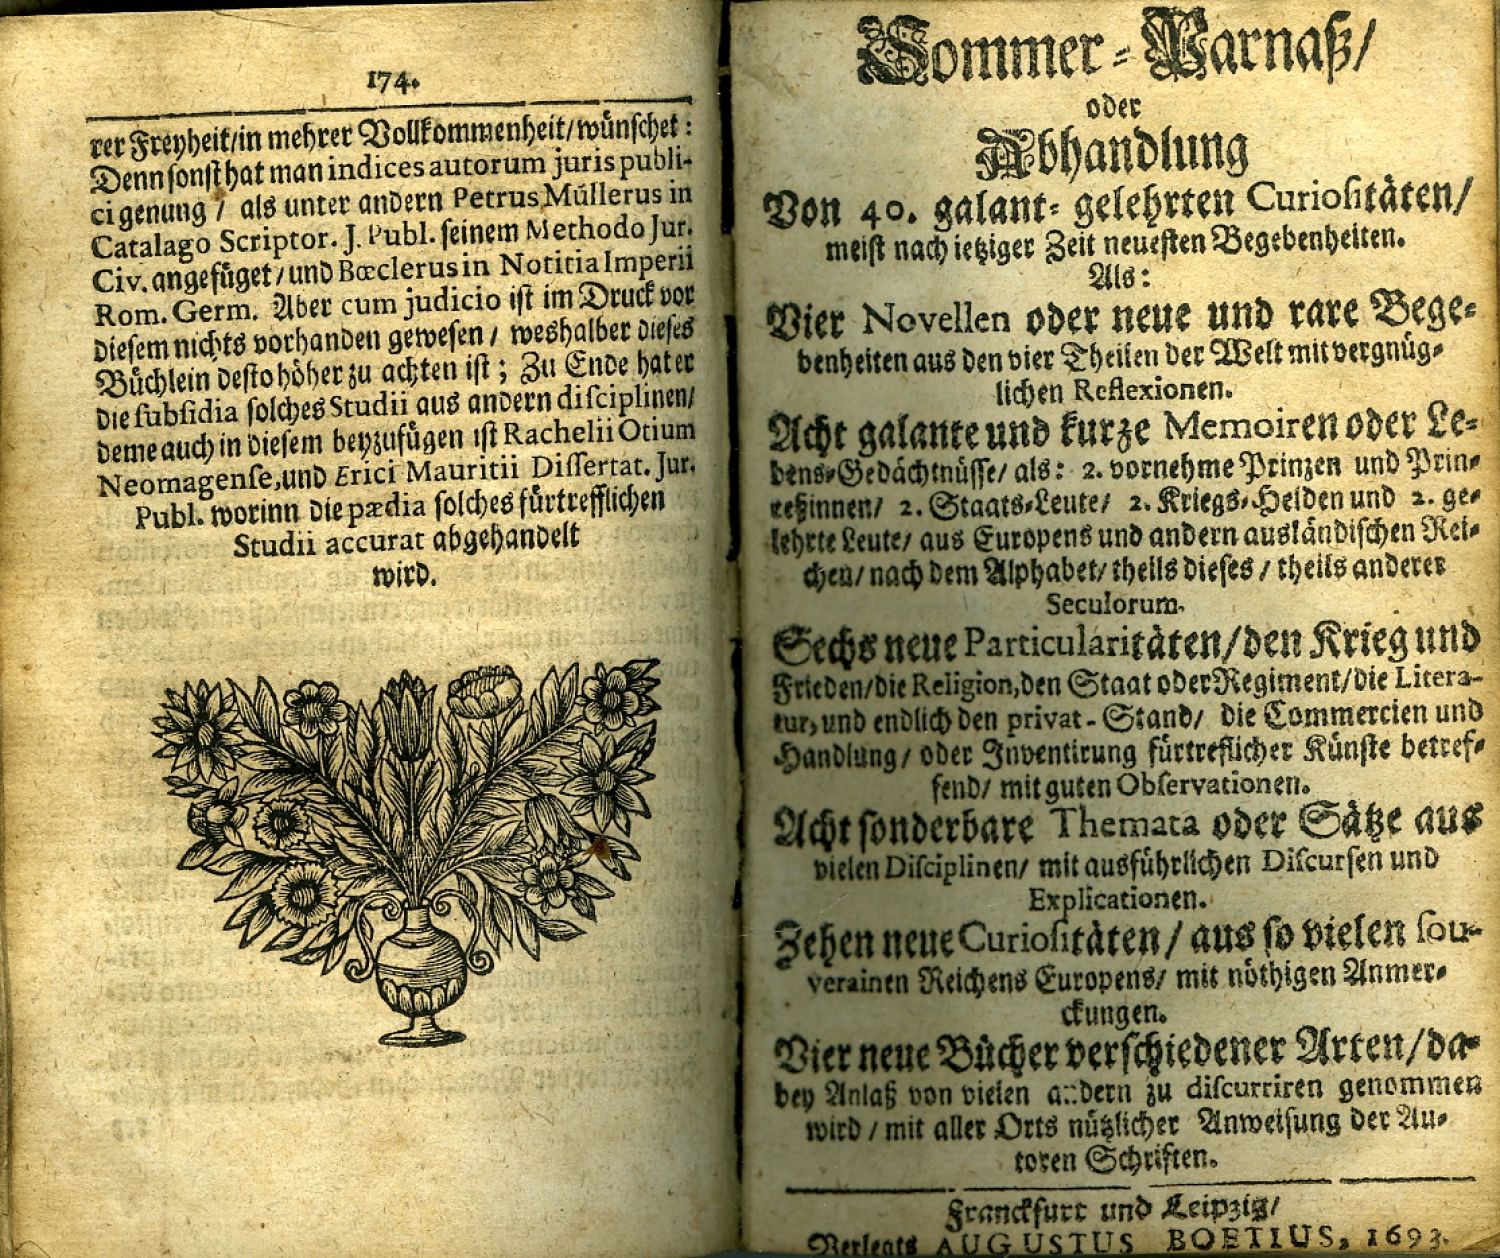 174.
rer Freyheit/in mehrer Vollkommenheit/wünschet:
Denn sonst hat man indices autorum juris publi-
ci genung / als unter andern Petrus Müllerus in
Catalago Scriptor. J. Publ. seinem Methodo Jur.
Civ. angefüget/und Bœclerus in Notitia Imperii
Rom. Germ. Aber cum judicio ist im Druck vor
diesem nichts vorhanden gewesen / weshalber dieses
Büchlein desto höher zu achten ist; Zu Ende hat er
die subsidia solches Studii aus andern disciplinen/
deme auch in diesem beyzufügen ist Rachelii Otium
Neomagense, und Erici Mauritii Dissertat. Jur.
Publ. worinn die pædia solches fürtrefflichen
Studii accurat abgehandelt
wird.
Sommer-Parnaß/
oder
Abhandlung
Von 40. galant-gelehrten Curiositäten/
meist nach ietziger Zeit neuesten Begebenheiten.
Als:
Vier Novellen oder neue und rare Bege-
benheiten aus den vier Theilen der Welt mit vergnüg-
lichen Reflexionen.
Acht galante und kurze Memoiren oder Le-
bens-Gedächtnüsse/ als: 2. vornehme Prinzen und Prin-
zeßinnen/ 2. Staats-Leute/ 2. Kriegs-Helden und 2. ge-
lehrte Leute/ aus Europens und andern ausländischen Rei-
chen/ nach dem Alphabet/ theils dieses / theils anderer
Seculorum.
Sechs neue Particularitäten/den Krieg und
Frieden/die Religion, den Staat oder Regiment/die Litera-
tur, und endlich den privat-Stand/ die Commercien und
Handlung/ oder Inventirung fürtreflicher Künste betref-
fend/ mit guten Observationen.
Acht sonderbare Themata oder Sätze aus
vielen Disciplinen/ mit ausführlichen Discursen und
Explicationen.
Zehen neue Curiositäten/ aus so vielen sou-
verainen Reichens Europens/ mit nöthigen Anmer-
ckungen.
Vier neue Bücher verschiedener Arten/da-
bey Anlaß von vielen andern zu discurriren genommen
wird / mit aller Orts nützlicher Anweisung der Au-
toren Schriften.
Franckfurt und Leipzig/
Verlegts AUGUSTUS BOETIUS, 1693.